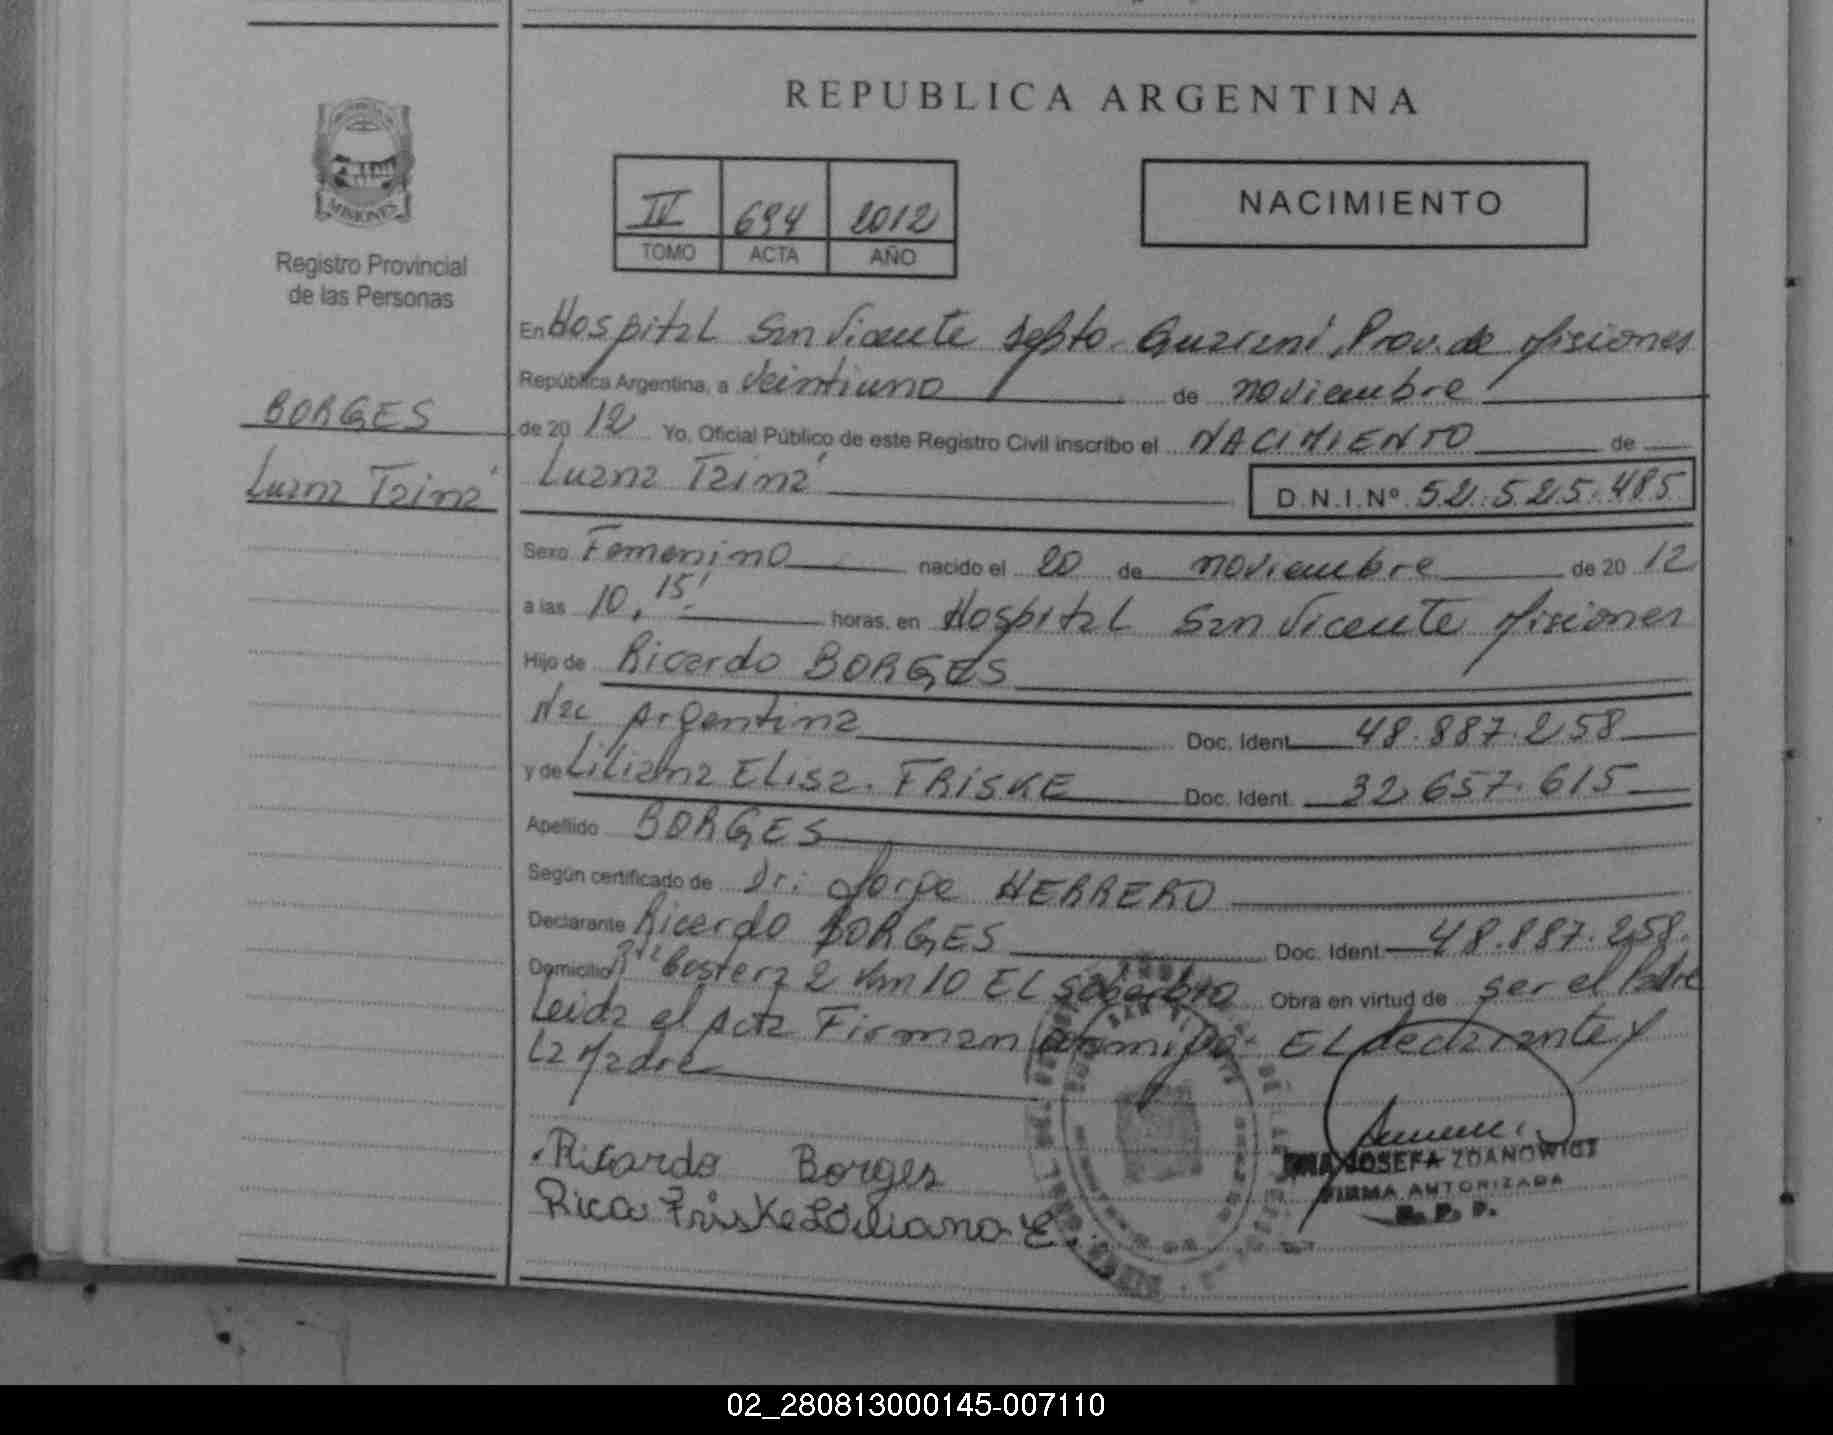 REPUBLICA ARGENTINA
MISIONES
Registro Provincial
de las Personas
IV 694 2012
TOMO ACTA AÑO
NACIMIENTO
En Hospital San Vicente Depto. Guaraní, Prov. de Misiones
República Argentina, a Veintiuno de noviembre
BORGES
de 20 12 Yo, Oficial Público de este Registro Civil inscribo el NACIMIENTO de
Luana Tainá
Luana Tainá
D.N.I.Nº 52.525.485
Sexo Femenino nacido el 20 de noviembre de 20 12
a las 10,15' horas, en Hospital San Vicente Misiones
Hijo de Ricardo BORGES
Nac Argentina Doc. Ident. 48.887.258
y de Liliana Elisa. FRISKE Doc. Ident. 32.657.615
Apellido BORGES
Según certificado de Dr: Jorge HERRERO
Declarante Ricardo BORGES Doc. Ident. 48.887.258.
Domicilio Costera 2 Km 10 EL Soberbio Obra en virtud de ser el Padre
Leida el Acta Firman conmigo EL declarante y
La Madre
Ricardo Borges
Rica Friske Liliana E.
JOSEFA ZDANOWICZ
FIRMA AUTORIZADA
R. P. P.
02_280813000145-007110